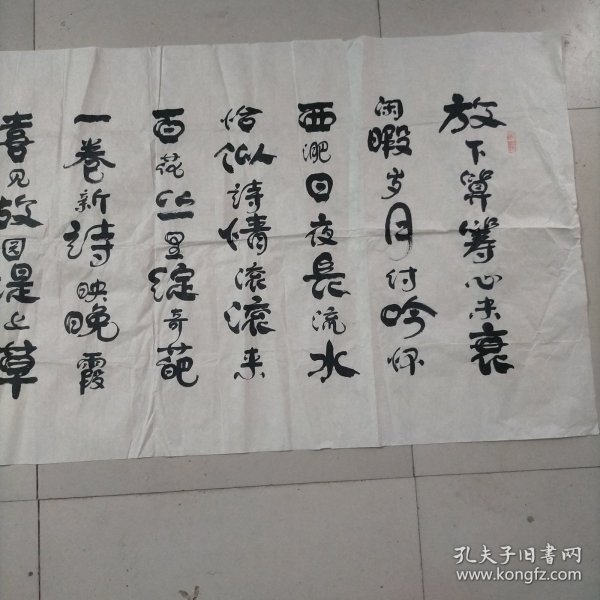 放下筭筹心未衰
闲暇岁月付吟怀
西淝日夜長流水
恰似詩情滚滚来
百花丛里绽奇葩
一卷新詩映晚霞
喜见故园堤上草
孔夫子旧書网
www.kongfz.com